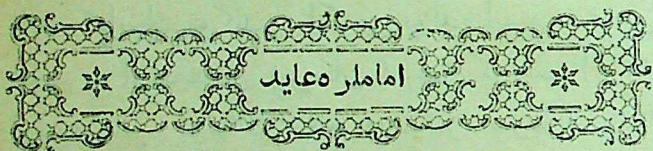 اماملر ەعايد